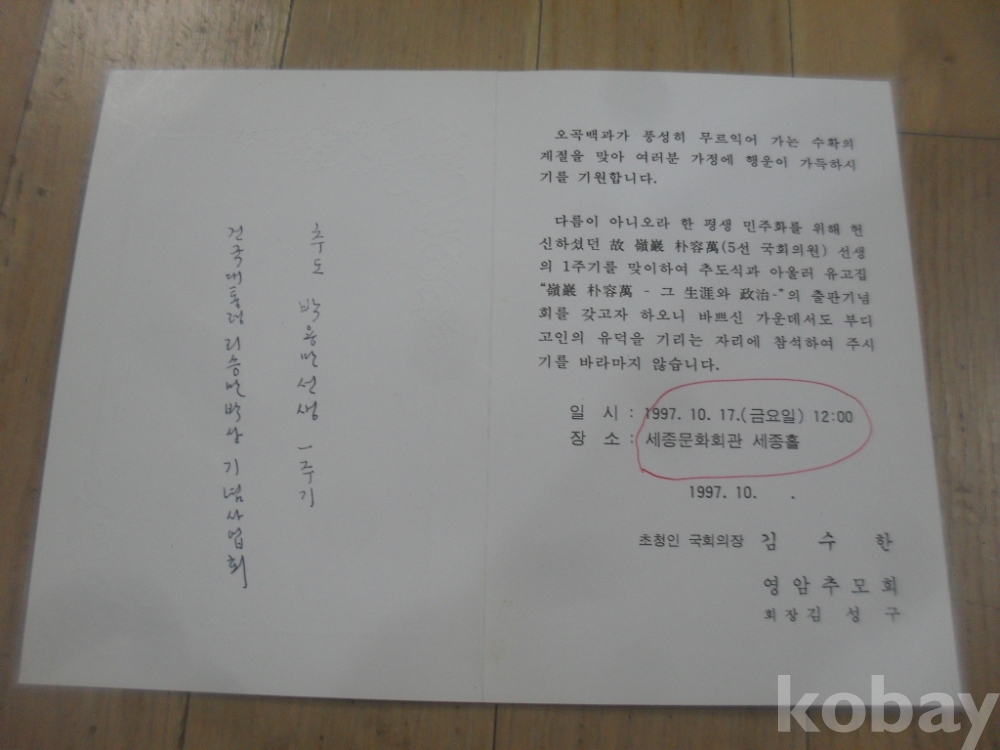 추도 박용만선생 一주기
건국대통령 리승만박사 기념사업회
오곡백과가 풍성히 무르익어 가는 수확의
계절을 맞아 여러분 가정에 행운이 가득하시
기를 기원합니다.
다름이 아니오라 한 평생 민주화를 위해 헌
신하셨던 故 嶺巖 朴容萬(5선 국회의원) 선생
의 1주기를 맞이하여 추도식과 아울러 유고집
“嶺巖 朴容萬 - 그 生涯와 政治-”의 출판기념
회를 갖고자 하오니 바쁘신 가운데서도 부디
고인의 유덕을 기리는 자리에 참석하여 주시
기를 바라마지 않습니다.
일 시 : 1997. 10. 17.(금요일) 12:00
장 소 : 세종문화회관 세종홀
1997. 10. .
초청인 국회의장 김 수 한
영암추모회
회장 김 성 구
kobay